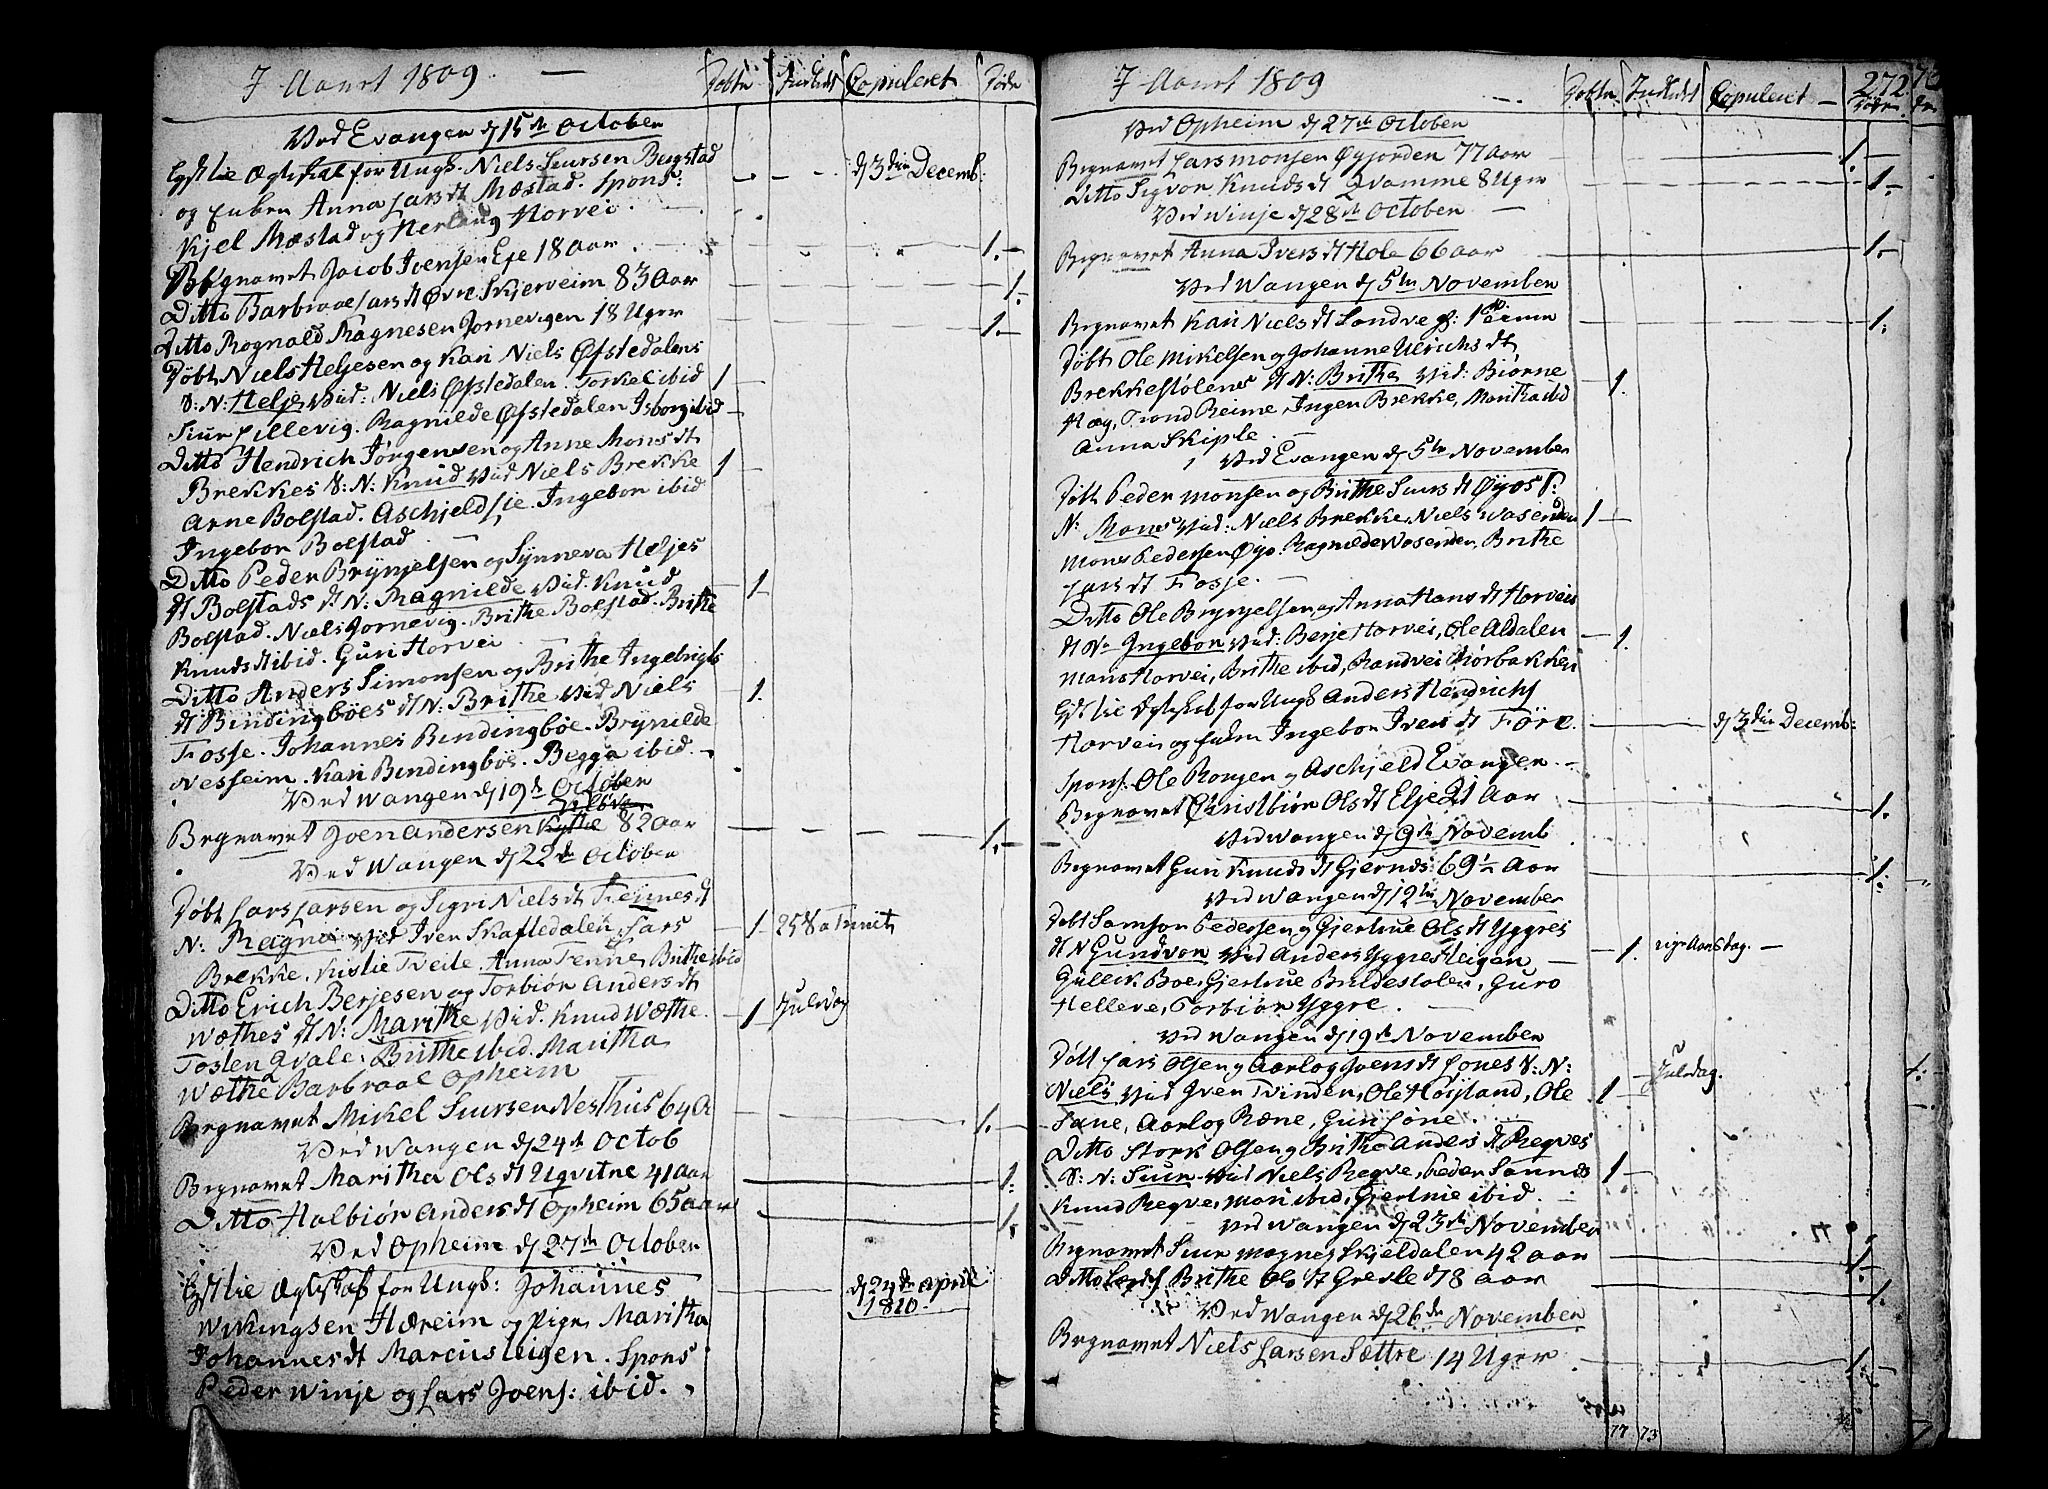 I Aaret 1809 — Døbte Indledt Copuleret Døde
Ved Evangen d 15de October
Egtskab for Ungk. Niels Siursen Bergstad d 3die Decemb:
og Enken Anna Lars dt Mæstad. Spons:
Kjel Mæstad og Herlaug Horvei
Begravet Jacob Iversen Eje 18 aar 1.
Ditto Barbraae Lars dt Øvre Skjerveim 83 Aar 1.
Ditto Rognald Magnesen Jornevigen 18 Uger 1.
Døbt Niels Heljesen og Kari Niels Øfstedalens
S: N: Helje Vid: Niels Øfstedalen. Torkel ibid 1
Siur Lillevig. Ragnilde Øfstedalen Isborg ibid
Ditto Hendrich Jørgensen og Anne Mons dt
Brekkes S: N: Knud Vid Niels Brekke 1
Arne Bolstad. Aschjeld Lie. Ingebor ibid
Ingebor Bolstad
Ditto Peder Brynjelsen og Synneva Heljes
dt Bolstads dt N: Ragnilde Vid. Knud 1
Bolstad. Niels Jornevig. Brithe Bolstad. Brithe
Knuds dt ibid. Guri Horvei
Ditto Anders Simonsen og Brithe Ingebrigts
dt Bindingbøes dt N: Brithe Vid Niels 1.
Fosse. Johannes Bindingbøe. Brynilde
Nesheim. Kari Bindingbøe. Begga ibid.
Ved Wangen d 19de October
Begravet Joen Andersen Kytte 82 aar 1.
Ved Wangen d 22de October
Døbt Lars Larsen og Sigri Niels dt Tennes dt
N: Magne Vid Iver Skafledalen, Lars 1 25 S a Trinit
Brekke. Kislie Tveite. Anna Tenne Brithe ibid
Ditto Erich Berjesen og Torbiør Anders dt
Wæthes dt N: Marithe Vid. Knud Wæthe. 1 Juledag
Tosten Qvale. Brithe ibid. Maritha
Wæthe Barbraae Opheim
Begravet Mikel Siursen Nesthus 64 A 1.
Ved Wangen d 24de Octob
Begravet Maritha Ols dt Ugvitne 41 aar 1.
Ditto Halbiør Anders dt Opheim 65 aar 1.
Ved Opheim d 27de October
Egtskab for Ungk: Johannes d 24de april
Wikingsen Hæreim og Pigen Maritha 1810
Johannes dt Marcusteigen. Spons
Peder Winje og Lars Joens: ibid.
I Aaret 1809 Døbte Indledt Copuleret 272 Døde
Ved Opheim d 27de October
Begravet Lars Monsen Øyjorden 77 Aar 1.
Ditto Sigvor Knuds dt Qvamme 8 Uger 1.
Ved Winje d 28de October
Begravet Anna Ivers dt Hole 66 aar 1.
Ved Wangen d 5te November
Begravet Kari Niels dt Sondve 1.
Døbt Ole Mikelsen og Johanne Ulrichs dt
Brekkestølenes dt N: Brithe Vid: Biørne 1.
Hæg, Trond Reime, Ingen Brekke, Marita ibid
Anna Skiple.
Ved Evangen d 5te November
Døbt Peder Monsen og Brithe Siurs dt Øyos S:
N: Mons Vid: Niels Brekke, Niels Wasenden 1
Mons Pedersen Øyo. Ragnilde Wasenden, Brithe
Lars dt Fosse.
Ditto Ole Brynjelsen og Anna Hans dt Horveis
dt N: Ingebor Vid: Berje Horvei, Ole Aldalen 1.
Mons Horvei, Brithe ibid, Randvei Mørbakken
Egtskab for Ungk Anders Hendrichs
Horvei og Enken Ingebor Ivers dt Føre. d 3die Decemb:
Spons. Ole Rongen og Aschjeld Evangen.
Begravet Christbiør Ols dt Elje 21 Aar 1.
Ved Wangen d 9de Novemb
Begravet Guri Knuds dt Gjernes: 69½ Aar 1.
Ved Wangen d 12te November
Døbt Samson Pedersen og Gjertrue Ols dt Yggres
dt N Gundvor Vid Anders Yggresteigen 1.
Gullik Boe, Gjertrue Buldestølen, Guro
Helleve, Torbiør Yggre.
Ved Wangen d 19de November
Døbt Lars Olsen og Aarlog Joens dt Lones S: N: Juledag.
Niels Vid Iver Tvinden, Ole Høyland, Ole 1
Fane, Aarlog Ræne, Guri Lone.
Ditto Stork Olsen og Brithe Anders dt Reqves
S: N: Siur Vid Niels Reqve, Peder Sonnds 1
Knud Reqve, Mari ibid, Gjertrue ibid.
Ved Wangen d 23de November
Begravet Siur Magnes Skjeldalen 42 aar 1.
Ditto Brithe Ols dt Gresle 78 aar 1.
Ved Wangen d 26de November
Begravet Niels Larsen Sættre 14 Uger 1.
77 73